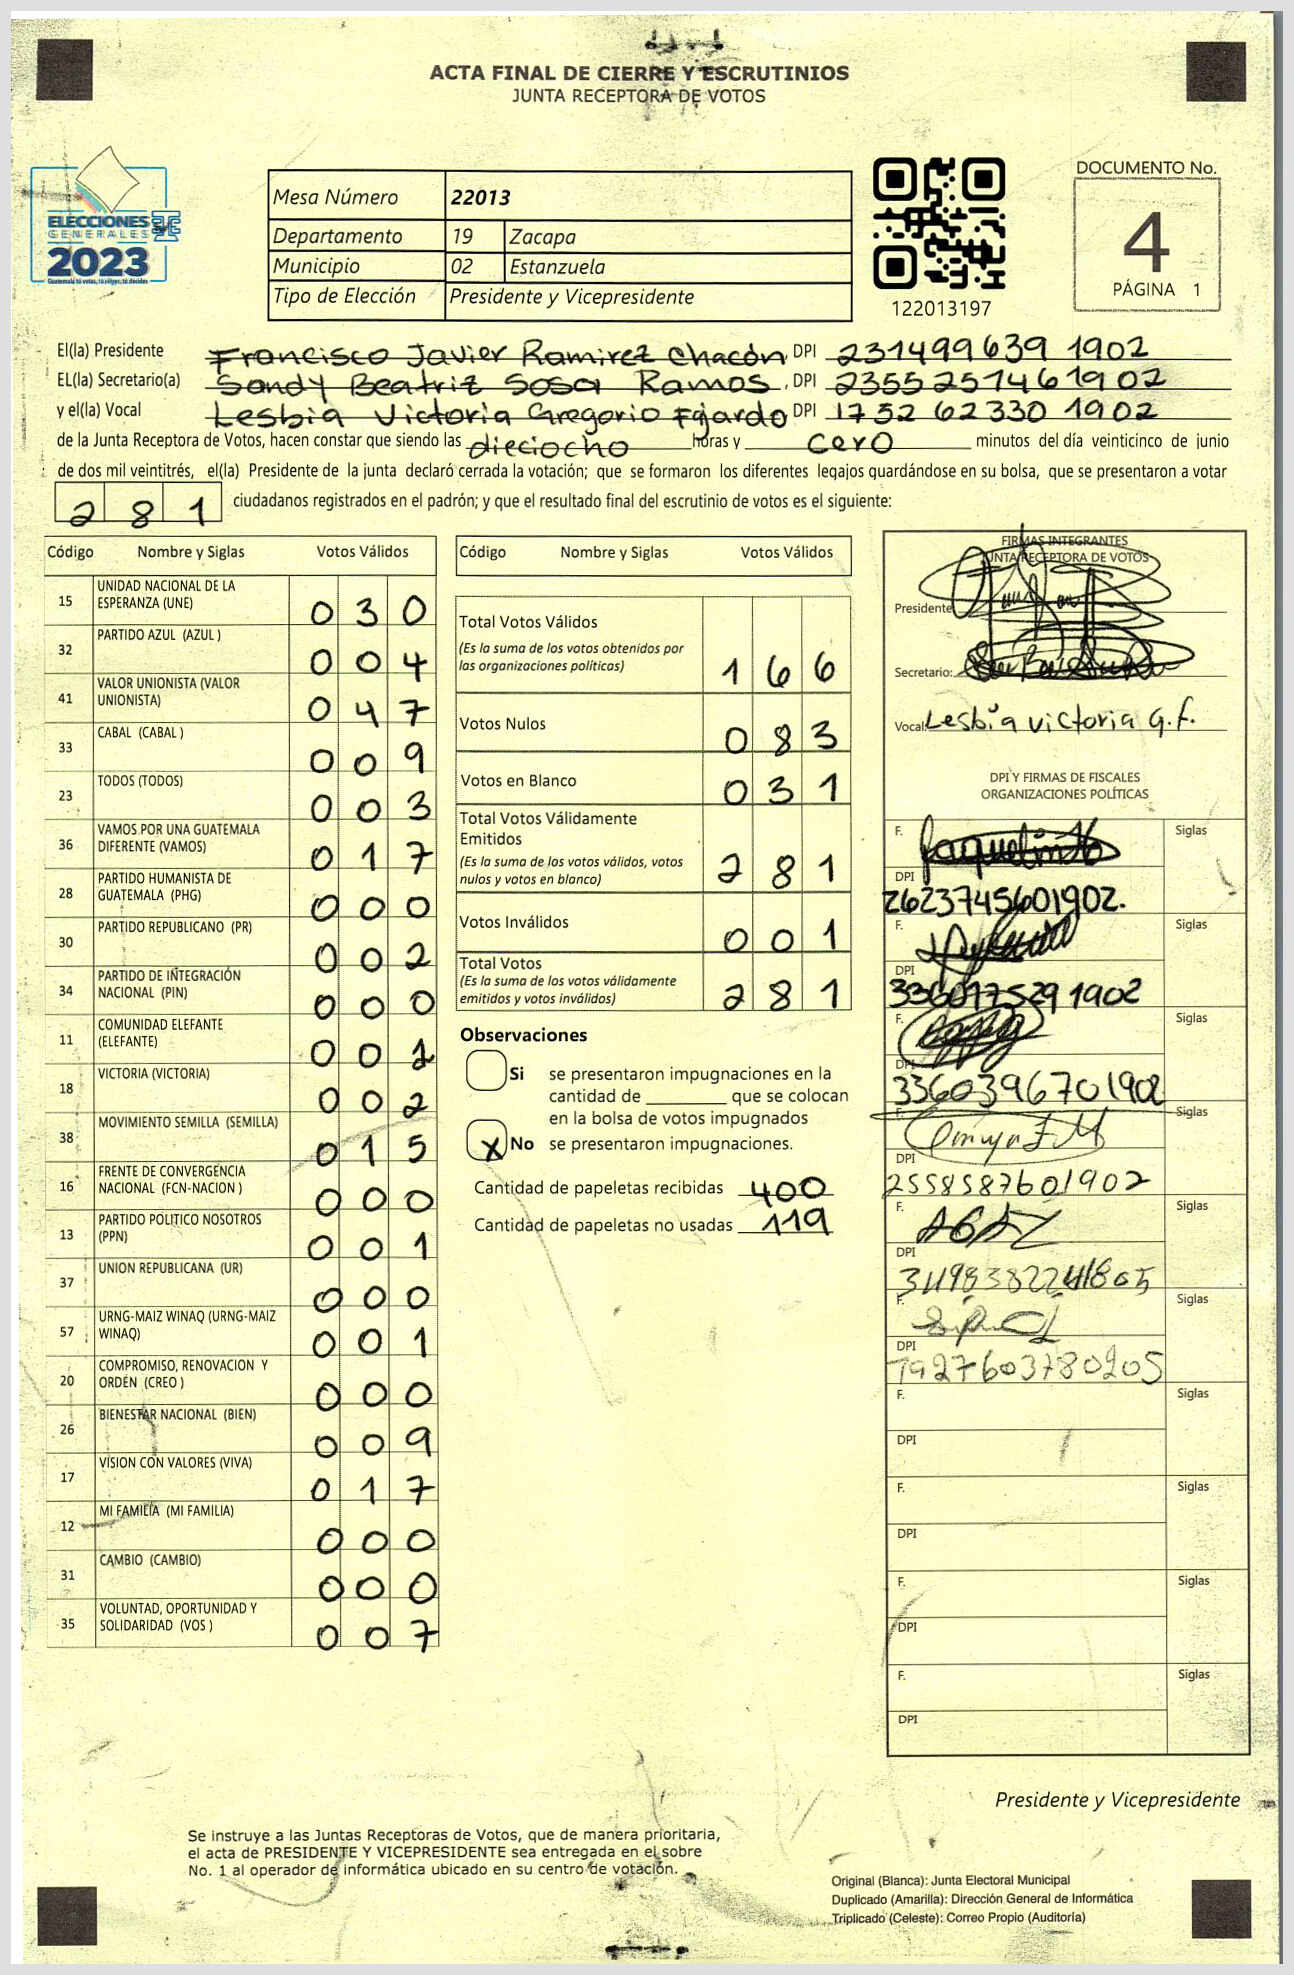 ACTA FINAL DE CIERRE Y ESCRUTINIOS
JUNTA RECEPTORA DE VOTOS
ELECCIONES
GENERALES
2023
Guatemala tú votas, tú eliges, tú decides
Mesa Número 22013
Departamento 19 Zacapa
Municipio 02 Estanzuela
Tipo de Elección Presidente y Vicepresidente
122013197
DOCUMENTO No.
4
PÁGINA 1
El(la) Presidente Francisco Javier Ramirez Chacón DPI 231499639 1902
EL(la) Secretario(a) Sandy Beatriz Sosa Ramos, DPI 2355251461902
y el(la) Vocal Lesbia Victoria Gregorio Fajardo DPI 1752 62330 1902
de la Junta Receptora de Votos, hacen constar que siendo las dieciocho horas y cero minutos del día veinticinco de junio
de dos mil veintitrés, el(la) Presidente de la junta declaró cerrada la votación; que se formaron los diferentes legajos guardándose en su bolsa, que se presentaron a votar
281 ciudadanos registrados en el padrón; y que el resultado final del escrutinio de votos es el siguiente:
Código Nombre y Siglas Votos Válidos
15 UNIDAD NACIONAL DE LA ESPERANZA (UNE) 030
32 PARTIDO AZUL (AZUL ) 004
41 VALOR UNIONISTA (VALOR UNIONISTA) 047
33 CABAL (CABAL ) 009
23 TODOS (TODOS) 003
36 VAMOS POR UNA GUATEMALA DIFERENTE (VAMOS) 017
28 PARTIDO HUMANISTA DE GUATEMALA (PHG) 000
30 PARTIDO REPUBLICANO (PR) 002
34 PARTIDO DE INTEGRACIÓN NACIONAL (PIN) 000
11 COMUNIDAD ELEFANTE (ELEFANTE) 00
18 VICTORIA (VICTORIA) 002
38 MOVIMIENTO SEMILLA (SEMILLA) 015
16 FRENTE DE CONVERGENCIA NACIONAL (FCN-NACION ) 000
13 PARTIDO POLITICO NOSOTROS (PPN) 001
37 UNION REPUBLICANA (UR) 000
57 URNG-MAIZ WINAQ (URNG-MAIZ WINAQ) 001
20 COMPROMISO, RENOVACION Y ORDEN (CREO ) 000
26 BIENESTAR NACIONAL (BIEN) 009
17 VISION CON VALORES (VIVA) 017
12 MI FAMILIA (MI FAMILIA) 000
31 CAMBIO (CAMBIO) 000
35 VOLUNTAD, OPORTUNIDAD Y SOLIDARIDAD (VOS ) 007
Código Nombre y Siglas Votos Válidos
Total Votos Válidos
(Es la suma de los votos obtenidos por
las organizaciones políticas) 166
Votos Nulos 083
Votos en Blanco 031
Total Votos Válidamente
Emitidos
(Es la suma de los votos válidos, votos
nulos y votos en blanco) 281
Votos Inválidos 001
Total Votos
(Es la suma de los votos válidamente
emitidos y votos inválidos) 281
Observaciones
Si se presentaron impugnaciones en la
cantidad de ________ que se colocan
en la bolsa de votos impugnados
X No se presentaron impugnaciones.
Cantidad de papeletas recibidas 400
Cantidad de papeletas no usadas 119
FIRMAS INTEGRANTES
JUNTA RECEPTORA DE VOTOS
Presidente
Secretario:
Vocal: Lesbia Victoria G. F.
DPI Y FIRMAS DE FISCALES
ORGANIZACIONES POLÍTICAS
F. Siglas
DPI
2623745601902.
F. Siglas
DPI
3360175291902
F. Siglas
DPI
3360396701902
F. Siglas
DPI
2558587601902
F. Siglas
DPI
F. Siglas
DPI
1927603780205
F. Siglas
DPI
F. Siglas
DPI
F. Siglas
DPI
F. Siglas
DPI
Presidente y Vicepresidente
Se instruye a las Juntas Receptoras de Votos, que de manera prioritaria,
el acta de PRESIDENTE Y VICEPRESIDENTE sea entregada en el sobre
No. 1 al operador de informática ubicado en su centro de votación.
Original (Blanca): Junta Electoral Municipal
Duplicado (Amarilla): Dirección General de Informática
Triplicado (Celeste): Correo Propio (Auditoría)